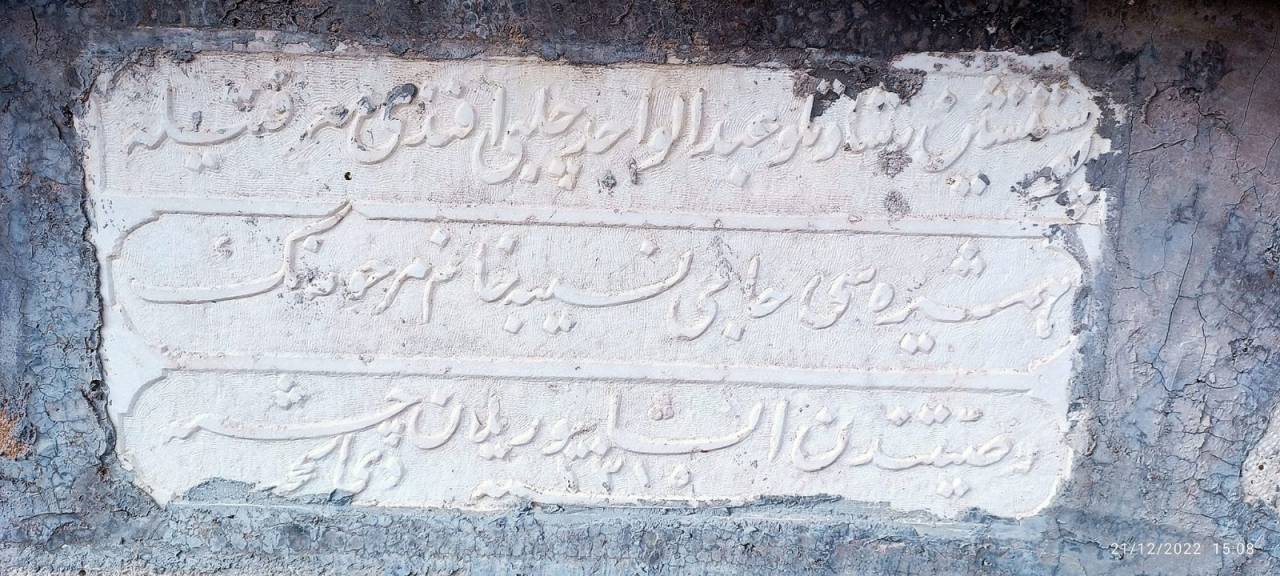 پوستنشین رشادتلو عبدالواحد چلبی افندی نه قتیله
همشیره سی حاجی نسیب خانم مرحومه نڭ
وصیتندن انشا ایدیریلان چشمه
سنه ١٣١٥ ذی الحجه
21/12/2022 15:08